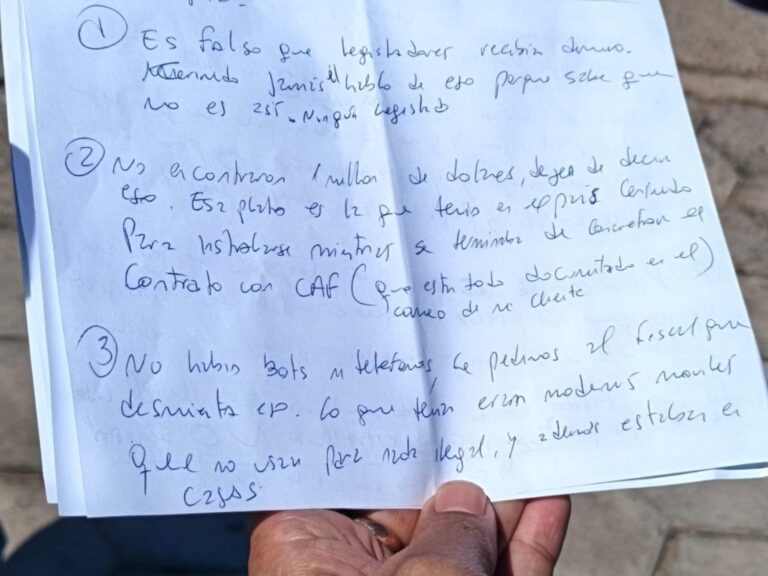 ① Es falso que legisladores recibían dinero.
jamás él habló de eso porque sabe que
no es así. Ningún legislad
② No encontraron 1 millon de dolares, dejen de decir
eso. Esa plata es la que tenía en el país
Para instalarse mientras se terminaba de concretar el
Contrato con CAF (que está todo documentado en el)
correo de mi cliente
③ No había bots ni telefonos, le pedimos al Fiscal que
desmienta eso. Lo que tenía eran modems moviles
que no usan para nada ilegal, y además estaban en
cajas.